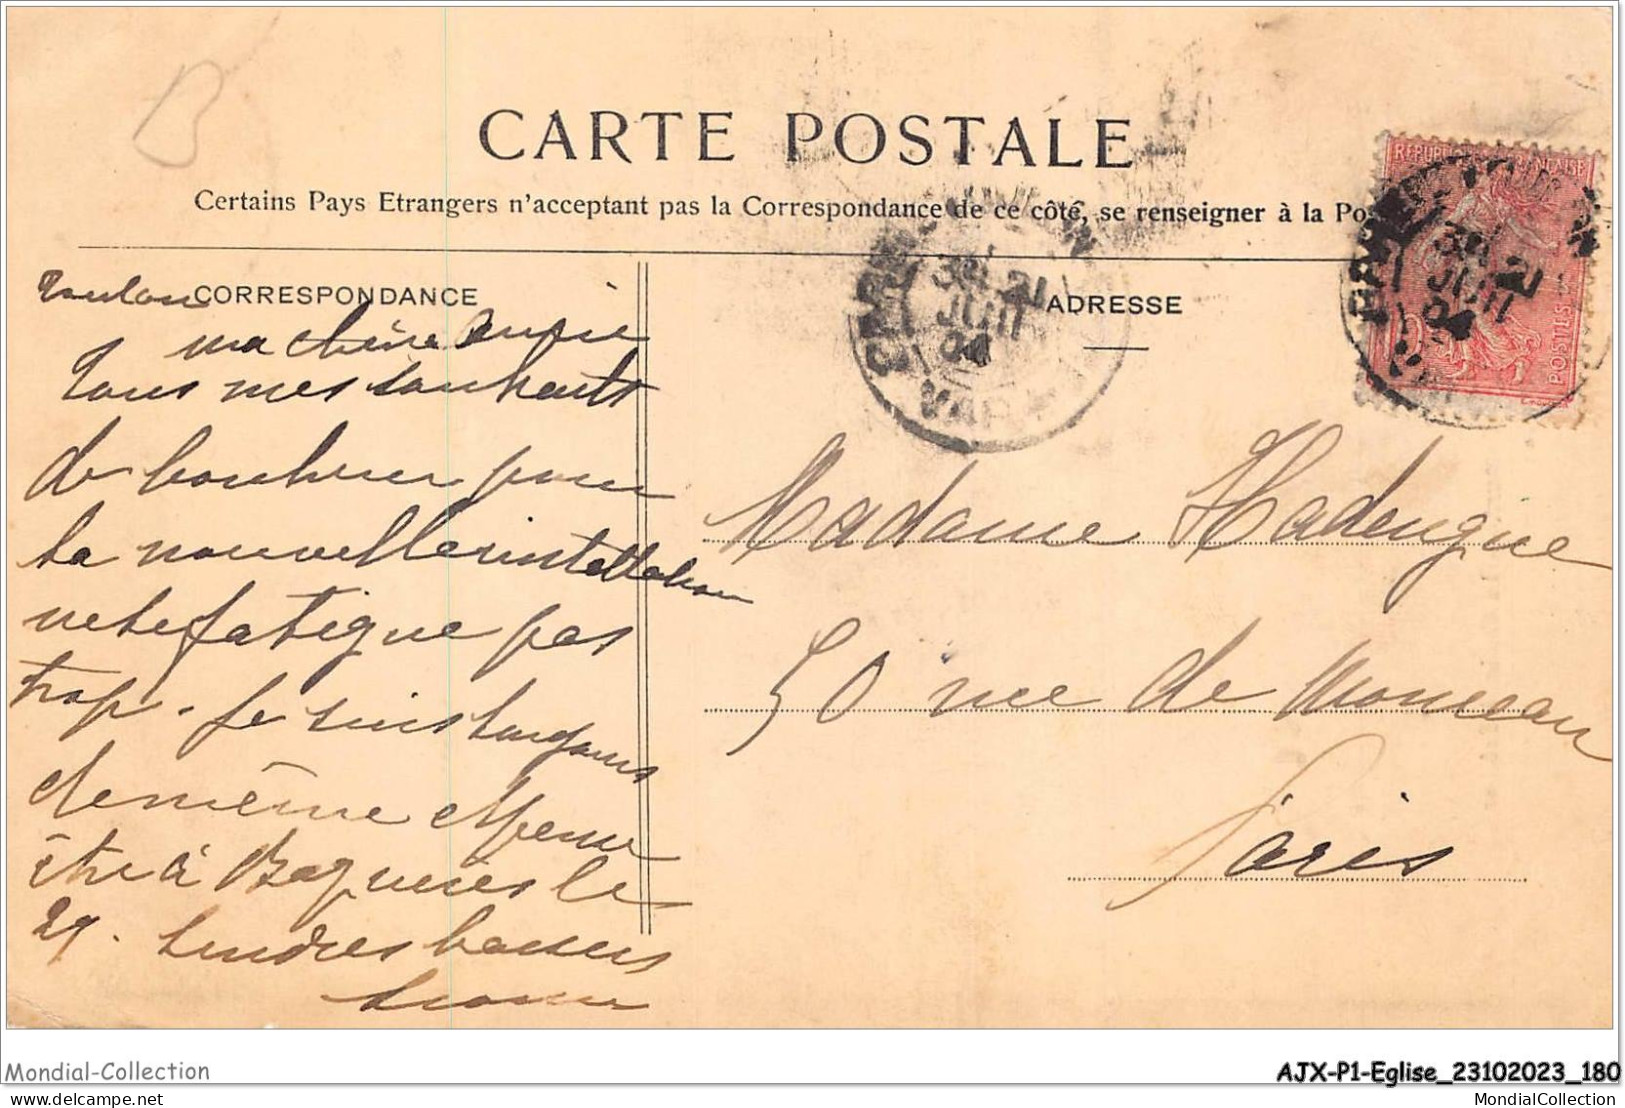 B
CARTE POSTALE
Certains Pays Etrangers n'acceptant pas la Correspondance de ce côté, se renseigner à la Po
REPUBLIQUE FRANÇAISE
POSTES
Toulon
CORRESPONDANCE
ADRESSE
21
JUIL
04
VAR
21
JUIL
04
ma chère
Tous mes souhaits
de bonheur pour
ta nouvelle installation
ne te fatigue pas
trop. Je suis toujours
de même et pense
être à Bagneres le
29. tendres baisers
Madame Hadengue
50 rue de Monceau
Paris
Mondial-Collection
AJX-P1-Eglise_23102023_180
delcampe.net
MondialCollection